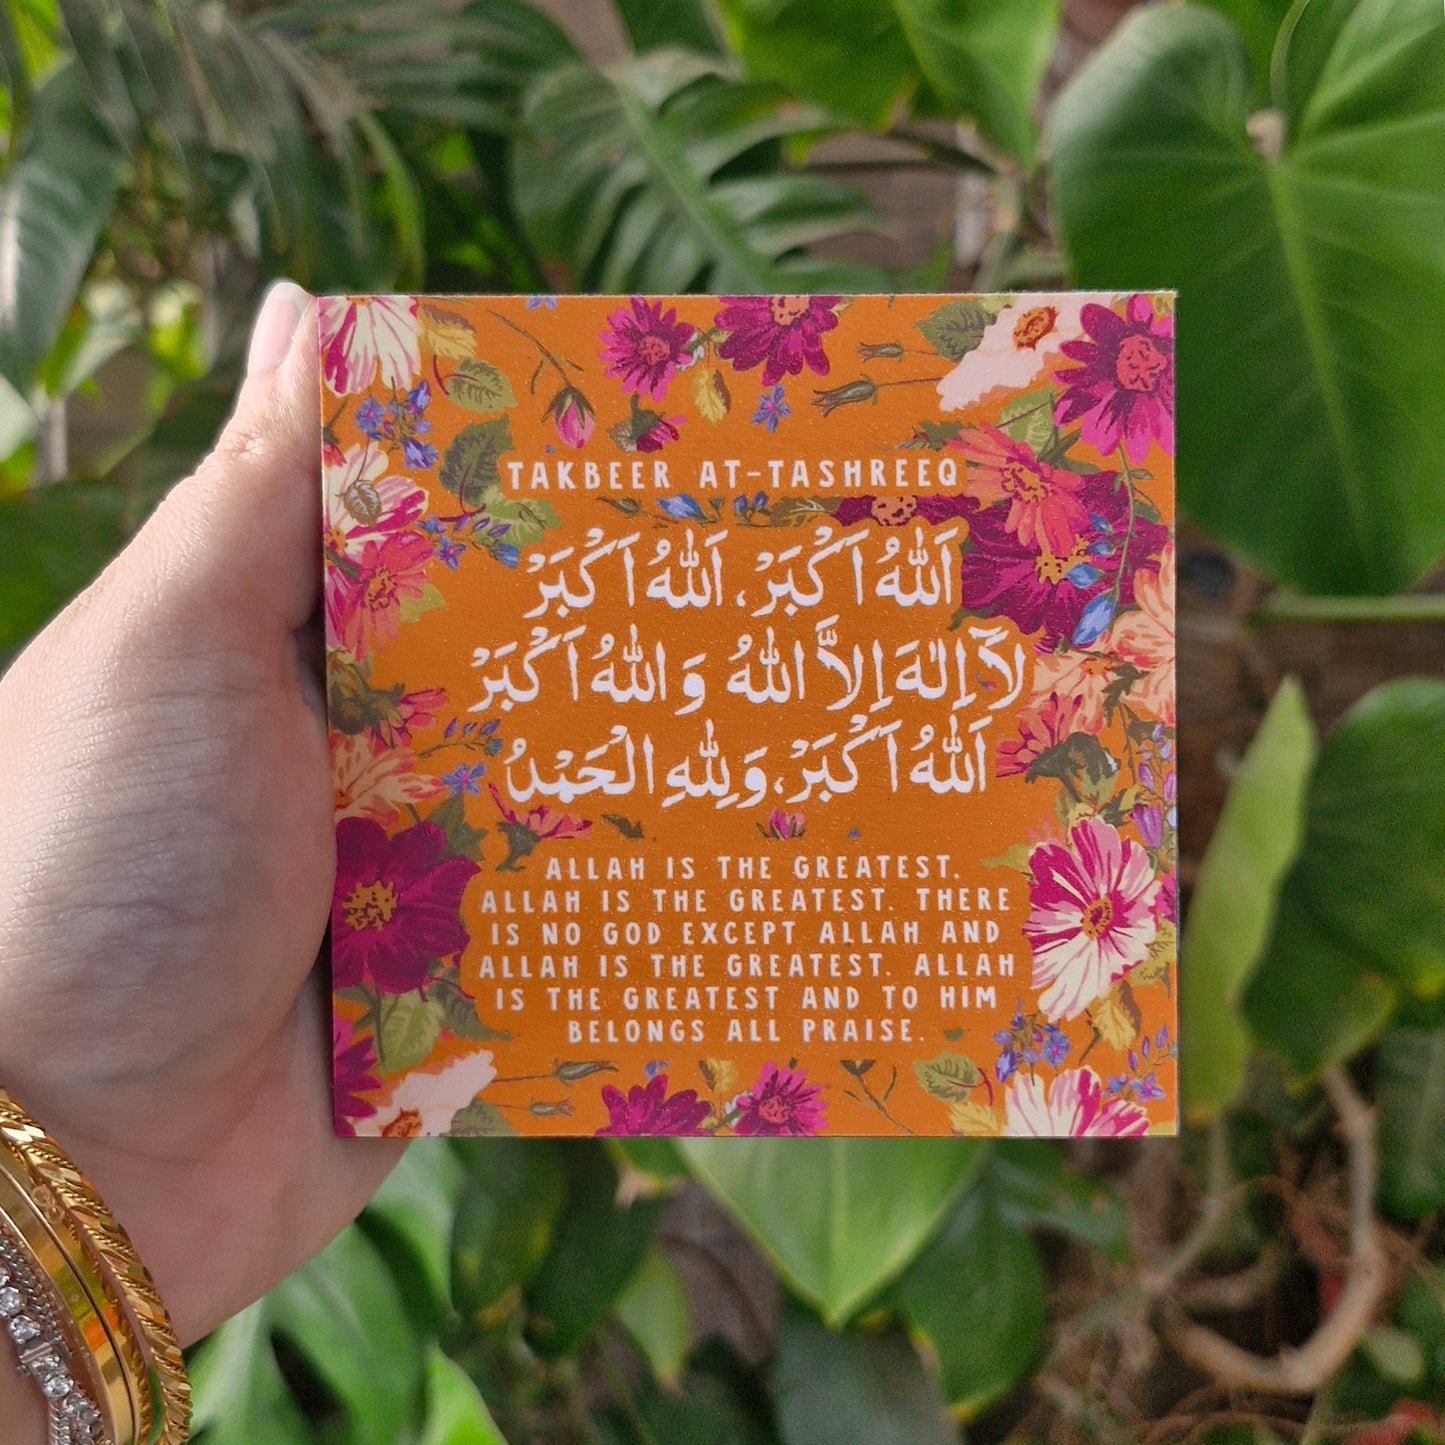 TAKBEER AT-TASHREEQ
اَللّٰهُ اَكْبَرْ، اَللّٰهُ اَكْبَرْ
لَآ اِلٰهَ اِلاَّ اللّٰهُ وَاللّٰهُ اَكْبَرْ
اَللّٰهُ اَكْبَرْ، وَلِلّٰهِ الْحَمْدُ
ALLAH IS THE GREATEST.
ALLAH IS THE GREATEST. THERE
IS NO GOD EXCEPT ALLAH AND
ALLAH IS THE GREATEST. ALLAH
IS THE GREATEST AND TO HIM
BELONGS ALL PRAISE.